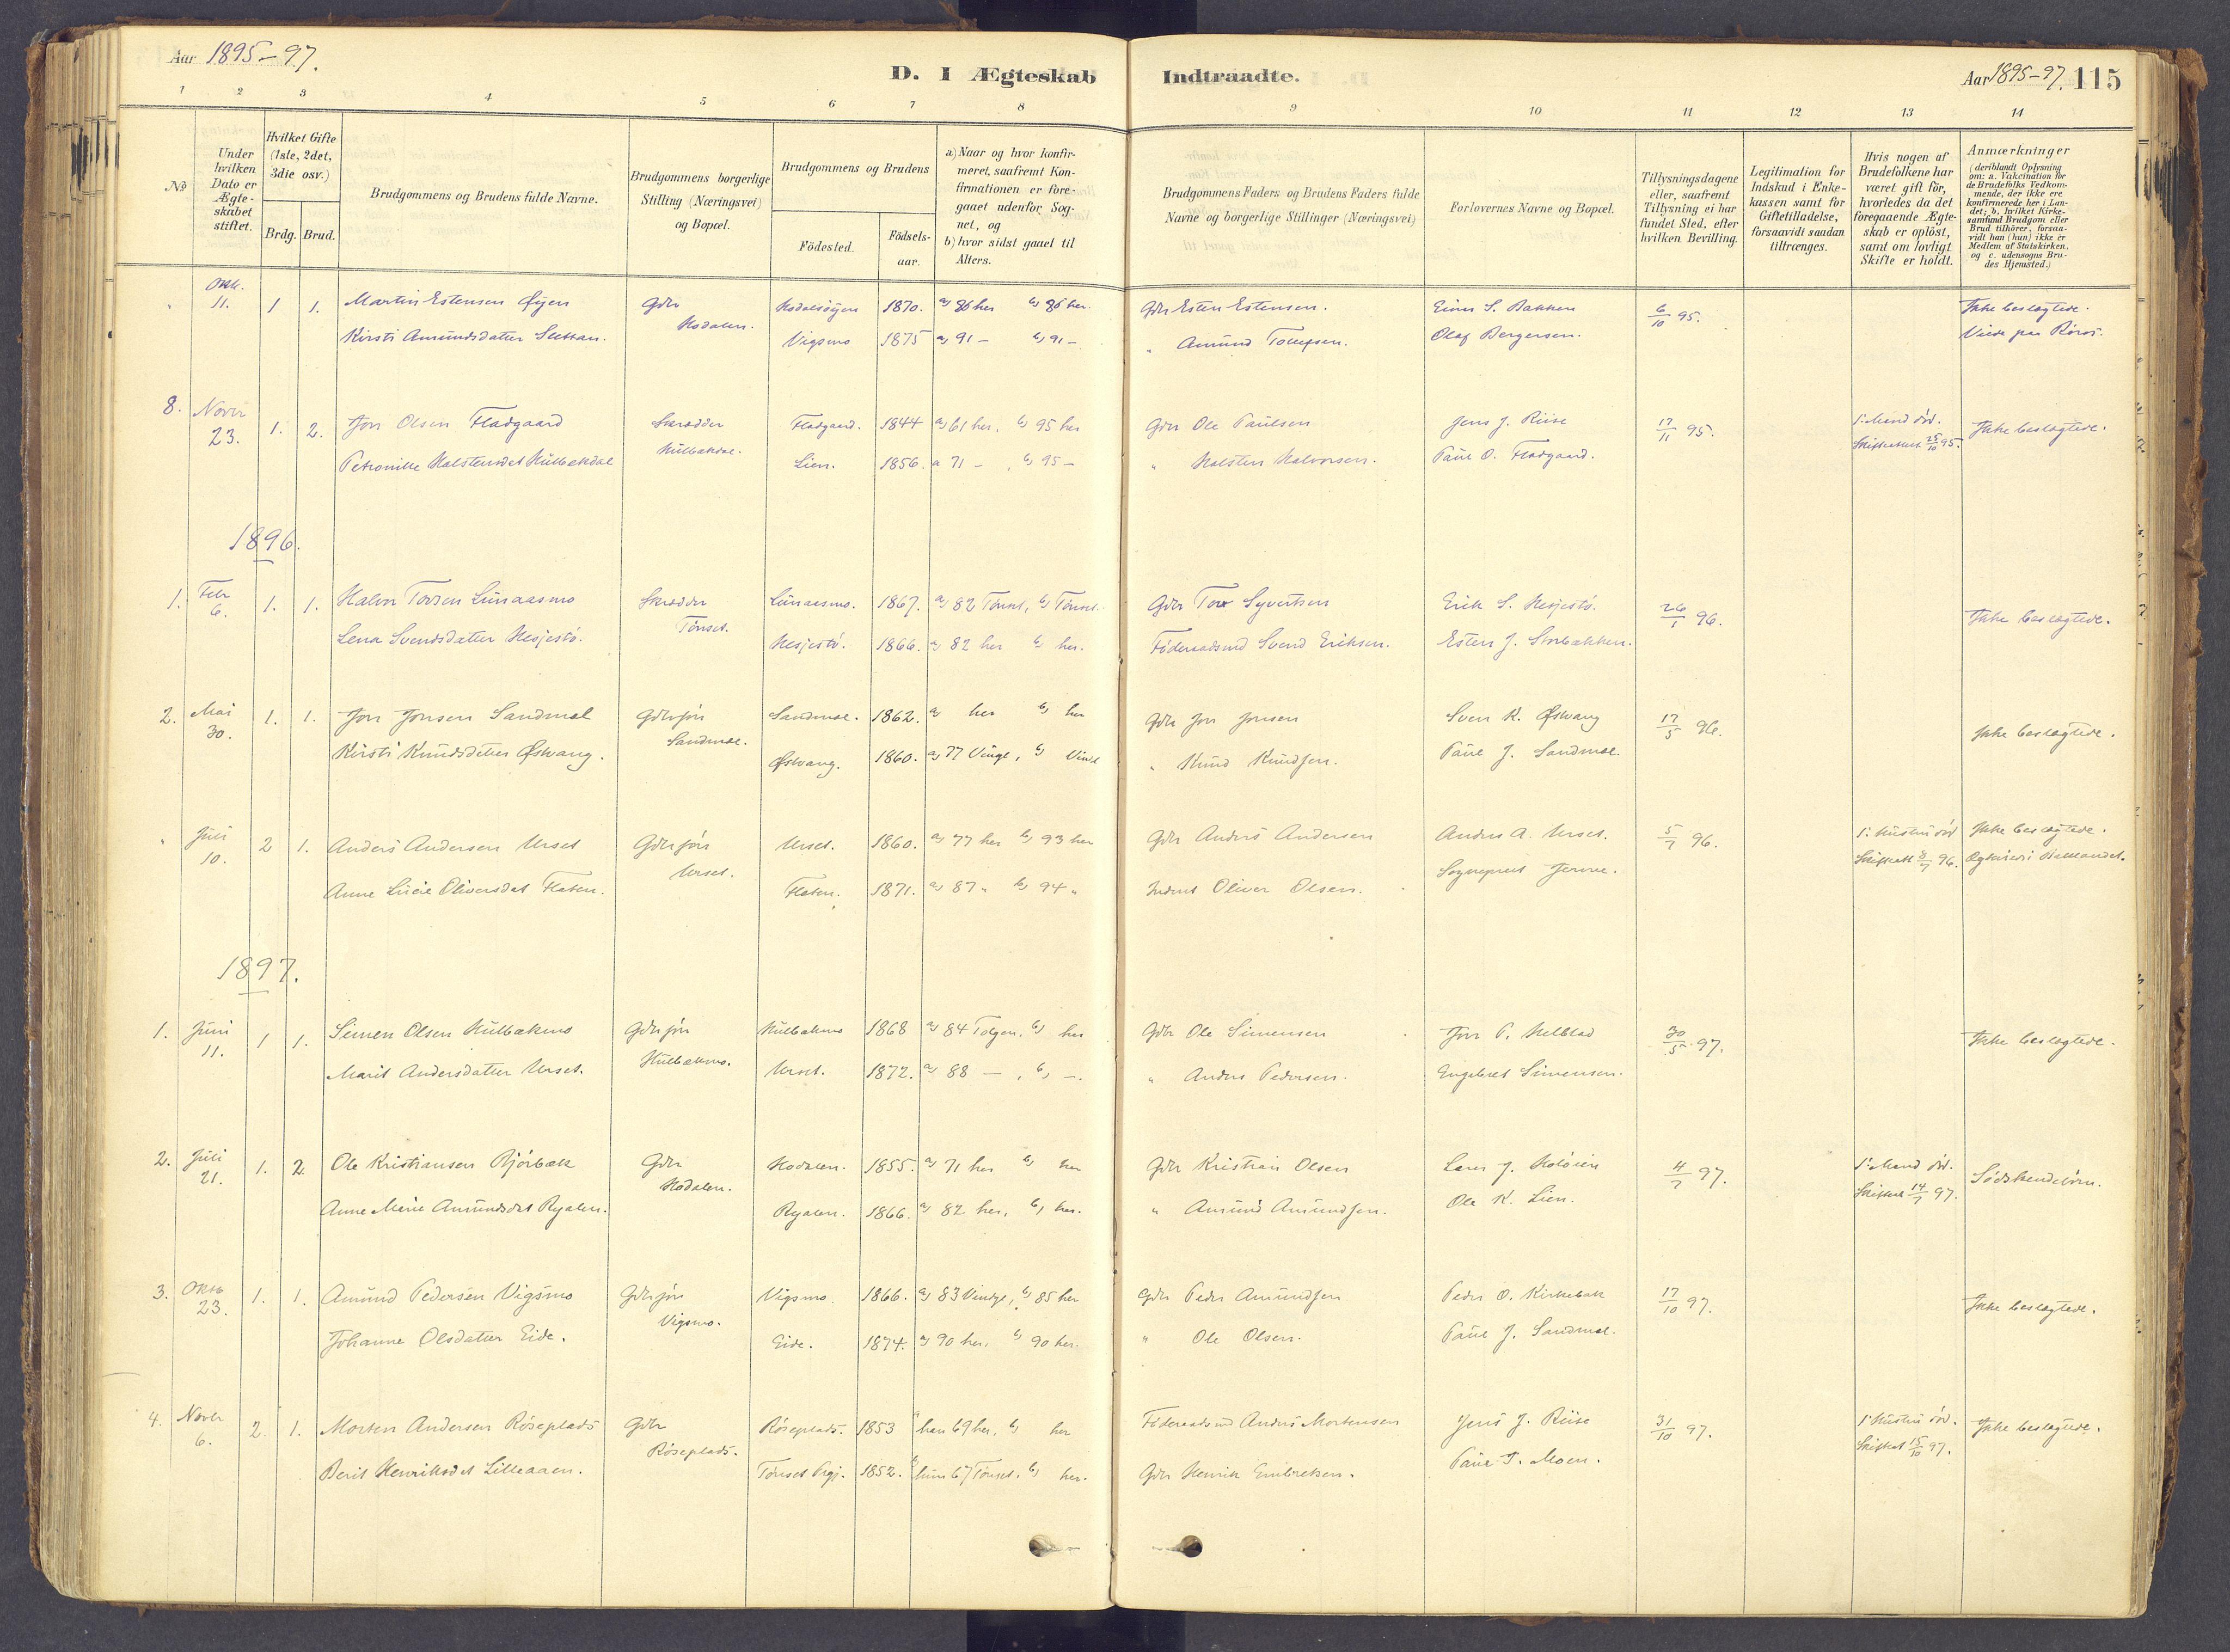 Aar 1895-97.
D. I Ægteskab Indtraadte.
Aar 1895-97. 115
1 2 3 4 5 6 7 8 9 10 11 12 13 14
No
Under hvilken Dato er Ægteskabet stiftet.
Hvilket Gifte (1ste, 2det, 3die osv.)
Brdg. Brud.
Brudgommens og Brudens fulde Navne.
Brudgommens borgerlige Stilling (Næringsvei) og Bopæl.
Brudgommens og Brudens
Födested. Födselsaar.
a) Naar og hvor konfirmeret, saafremt Konfirmationen er foregaaet udenfor Sognet, og
b) hvor sidst gaaet til Alters.
Brudgommens Faders og Brudens Faders fulde Navne og borgerlige Stillinger (Næringsvei)
Forlovernes Navne og Bopæl.
Tillysningsdagene eller, saafremt Tillysning ei har fundet Sted, efter hvilken Bevilling.
Legitimation for Indskud i Enkekassen samt for Giftetilladelse, forsaavidt saadan tiltrænges.
Hvis nogen af Brudefolkene har været gift för, hvorledes da det foregaaende Ægteskab er oplöst, samt om lovligt Skifte er holdt.
Anmærkninger (deriblandt Oplysning om: a. Vakcination for de Brudefolks Vedkommende, der ikke ere konfirmerede her i Landet; b. hvilket Kirkesamfund Brudgom eller Brud tilhörer, forsaavidt han (hun) ikke er Medlem af Statskirken. og c. udensogns Brudes Hjemsted.)
" Oktb. 11. 1 1. Martin Estensen Øyen Gdbr Hodalen. Hodalsöyen 1870. a) 86 her b) 86 her. Gdbr Esten Estensen. Einar S. Bakken 6/10 95. Ikke beslægtede.
Kirsti Amundsdatter Slettan. Vigsmo 1875 a) 91 - b) 91 - " Amund Olaf Bergersen. Viede paa Röros.
8. Novbr 23. 1. 2. Jon Olsen Fladgaard Skrædder Hulbækdal. Fladgaard. 1844 a) 61 her, b) 95 her Gdbr Ole Paulsen Jens J. Riise 17/11 95. 1: Mand död. Ikke beslægtede.
Petronille Halstensdat Hulbækdal Lien. 1856. a 71 -, b) 95 - " Halsten Halvorsen. Paul O. Fladgaard. Skifteatt 25/10 95.
1896.
1. Febr 6. 1. 1. Halvor Torsen Lunaasmo Skrædder Tönset. Lunaasmo. 1867. a) 82 Tönset, b) Tönset. Gdbr Tor Syvertsen Erik S. Nesjestö. 26/1 96. Ikke beslægtede.
Lena Svendsdatter Nesjestö. Nesjestö. 1866. a) 82 her b) her. Föderaadsmd Svend Eriksen. Esten J. Storbækken.
2. Mai 30. 1. 1. Jon Jonsen Sandmæl Gdbrsön Sandmæl. Sandmæl. 1862. a) her b) her Gdbr Jon Jonsen Sven K. Øsvang 17/5 96. Ikke beslægtede.
Kirsti Knudsdatter Øsvang. Øsvang. 1860. a) 77 Vinge, b) " Knud Knudsen. Paul J. Sandmæl.
" Juli 10. 2 1. Anders Andersen Urset Gdbrsön Urset. Urset. 1860. a) 77 her b) 93 her Gdbr Anders Andersen Anders A. Urset. 5/7 96. 1: Hustru död Ikke beslægtede.
Anne Lucie Oliversdat Flaten. Flaten. 1871. a) 87 " b) 94 " Oliver Olsen. Sognepræst Skifteatt 8/7 96.
1897.
1. Juni 11. 1 1. Simen Olsen Hulbækmo Gdbrsön Hulbækmo. Hulbækmo 1868 a) 84 Tolgen, b) her Gdbr Ole Simensen Jon P. Melblad 30/5 97. Ikke beslægtede.
Marit Andersdatter Urset. Urset. 1872. a) 88 -, b) -. " Anders Pedersen. Engebret Simensen.
2. Juli 21. 1. 2. Ole Kristiansen Bjórbæk Gdbr Hodalen. Hodalen. 1855. a) 71 her b) her Gdbr Kristian Olsen Lars J. Holöien 4/7 97. 1: Mand död. Sødskendebörn.
Anne Marie Amundsdat Ryalen. Ryalen. 1866. a) 82 her, b) her. " Amund Amundsen. Ole K. Lien. Skifteatt 14/7 97.
3. Oktb 23. 1. 1. Amund Pedersen Vigsmo Gdbrsön Vigsmo. Vigsmo. 1866. a) 83 Vindge, b) 85 her Gdbr Peder Amundsen Peder O. Kirkebæk 17/10 97. Ikke beslægtede.
Johanne Olsdatter Eide. Eide. 1874. a) 90 her. b) 90 her. " Ole Olsen. Paul J. Sandmæl.
4. Novbr 6. 2. 1. Morten Andersen Röseplads Gdbr Röseplads. Röseplads. 1853 a) han 69 her, b) her Föderaadsmd Anders Mortensen Jens J. Riise 31/10 97. 1: Hustru död. Ikke beslægtede.
Berit Henriksdat Lilleaaen. Tönset Prgj. 1852. hun 67 Tönset, b) her. Gdbr Henrik Embretsen. Paul T. Moen. Skifteatt 15/10 97.